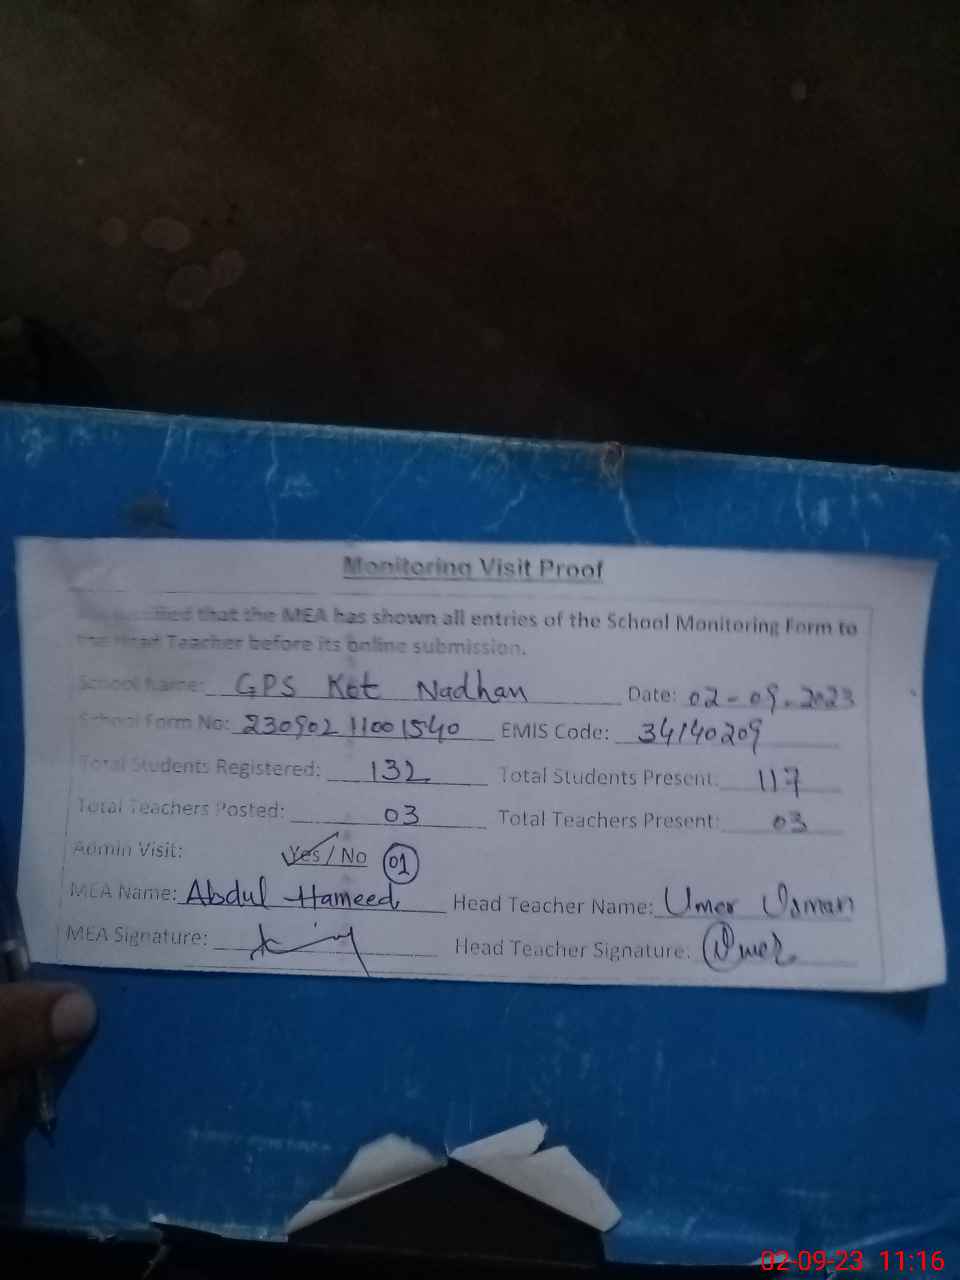 Monitoring Visit Proof
that the MEA has shown all entries of the School Monitoring Form to
the Head Teacher before its online submission.
School Name: GPS Kot Nadhan Date: 02-09-2023
School Form No: 23090211001540 EMIS Code: 34140209
Total Students Registered: 132 Total Students Present: 117
Total Teachers Posted: 03 Total Teachers Present: 03
Admin Visit: Yes / No 01
MEA Name: Abdul Hameed Head Teacher Name: Umer Usman
MEA Signature: Head Teacher Signature: Umer
02-09-23 11:16